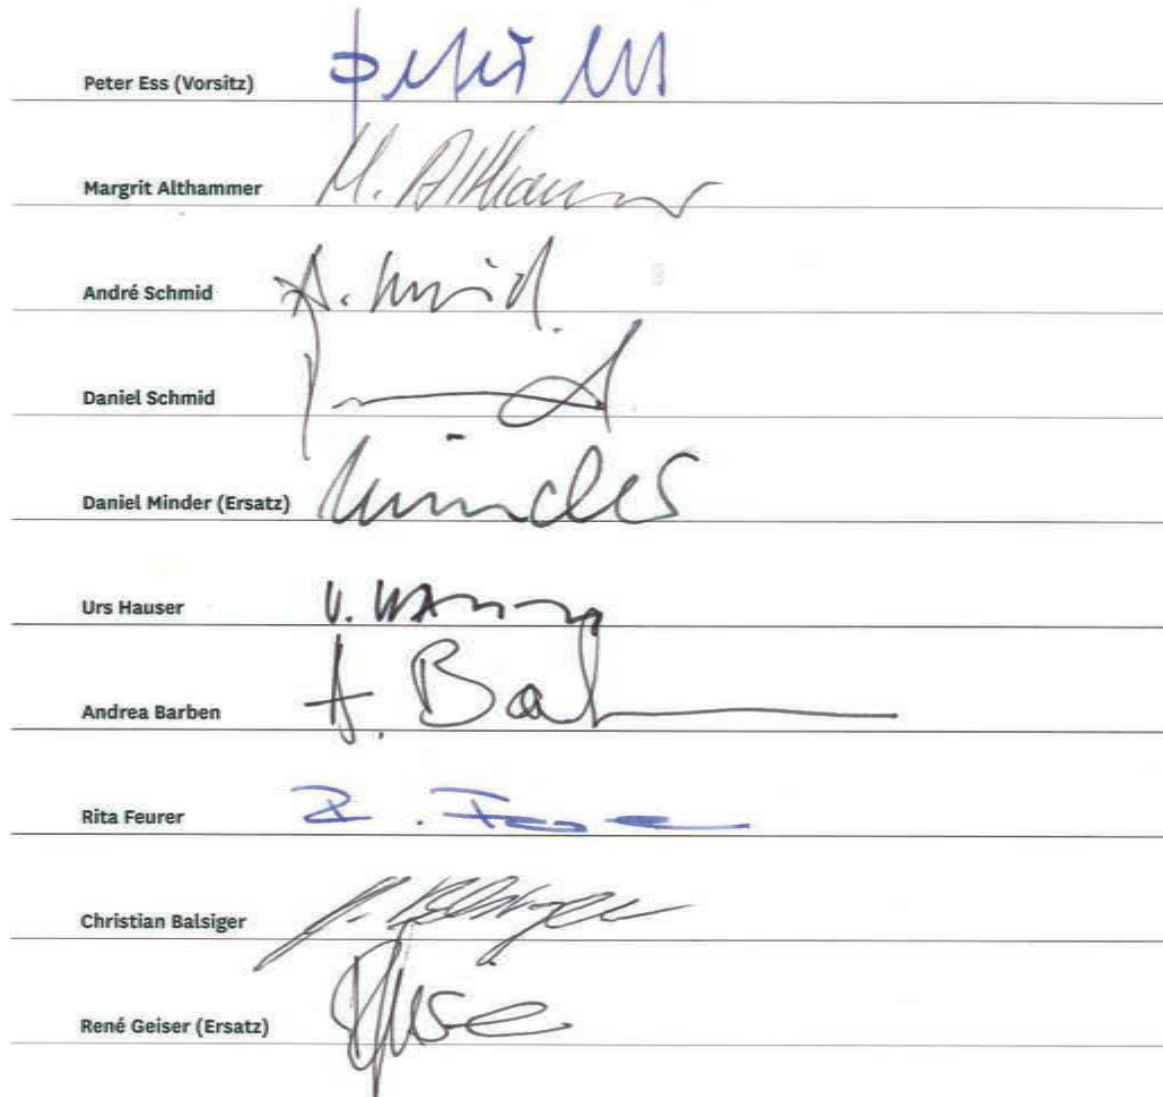 Peter Ess (Vorsitz) Peter Ess
Margrit Althammer M. Althammer
André Schmid A. Schmid
Daniel Schmid
Daniel Minder (Ersatz) Minder
Urs Hauser U. Hauser
Andrea Barben A. Barben
Rita Feurer R. Feurer
Christian Balsiger C. Balsiger
René Geiser (Ersatz)